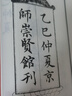 乙巳仲夏京
師崇賢館刊